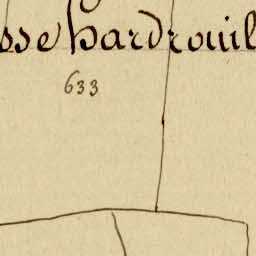 sse hardrouil
633